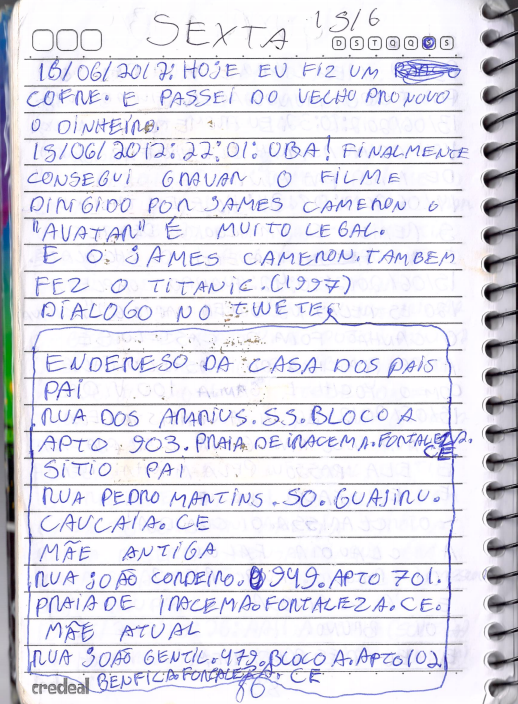 SEXTA 15/6
D S T Q Q S S
15/06/2012: HOJE EU FIZ UM
COFRE. E PASSEI DO VELHO PRO NOVO
O DINHEIRO.
15/06/2012: 22:01: OBA! FINALMENTE
CONSEGUI GRAVAR O FILME
DIRIGIDO POR JAMES CAMERON O
"AVATAR" É MUITO LEGAL.
E O JAMES CAMERON. TAMBEM
FEZ O TITANIC. (1997)
DIALOGO NO TWETER
ENDERESO DA CASA DOS PAIS
PAI
RUA DOS ARARIUS. S.S. BLOCO A
APTO 903. PRAIA DE IRACEMA. FORTALEZA.
CE
SÍTIO PAI
RUA PEDRO MARTINS. SO. GUAJIRU.
CAUCAIA. CE
MÃE ANTIGA
RUA JOÃO CORDEIRO. 949. APTO 701.
PRAIA DE IRACEMA. FORTALEZA. CE.
MÃE ATUAL
RUA JOÃO GENTIL. 479. BLOCO A. APTO 102
BENFICA. FORTALEZA. CE
credeal